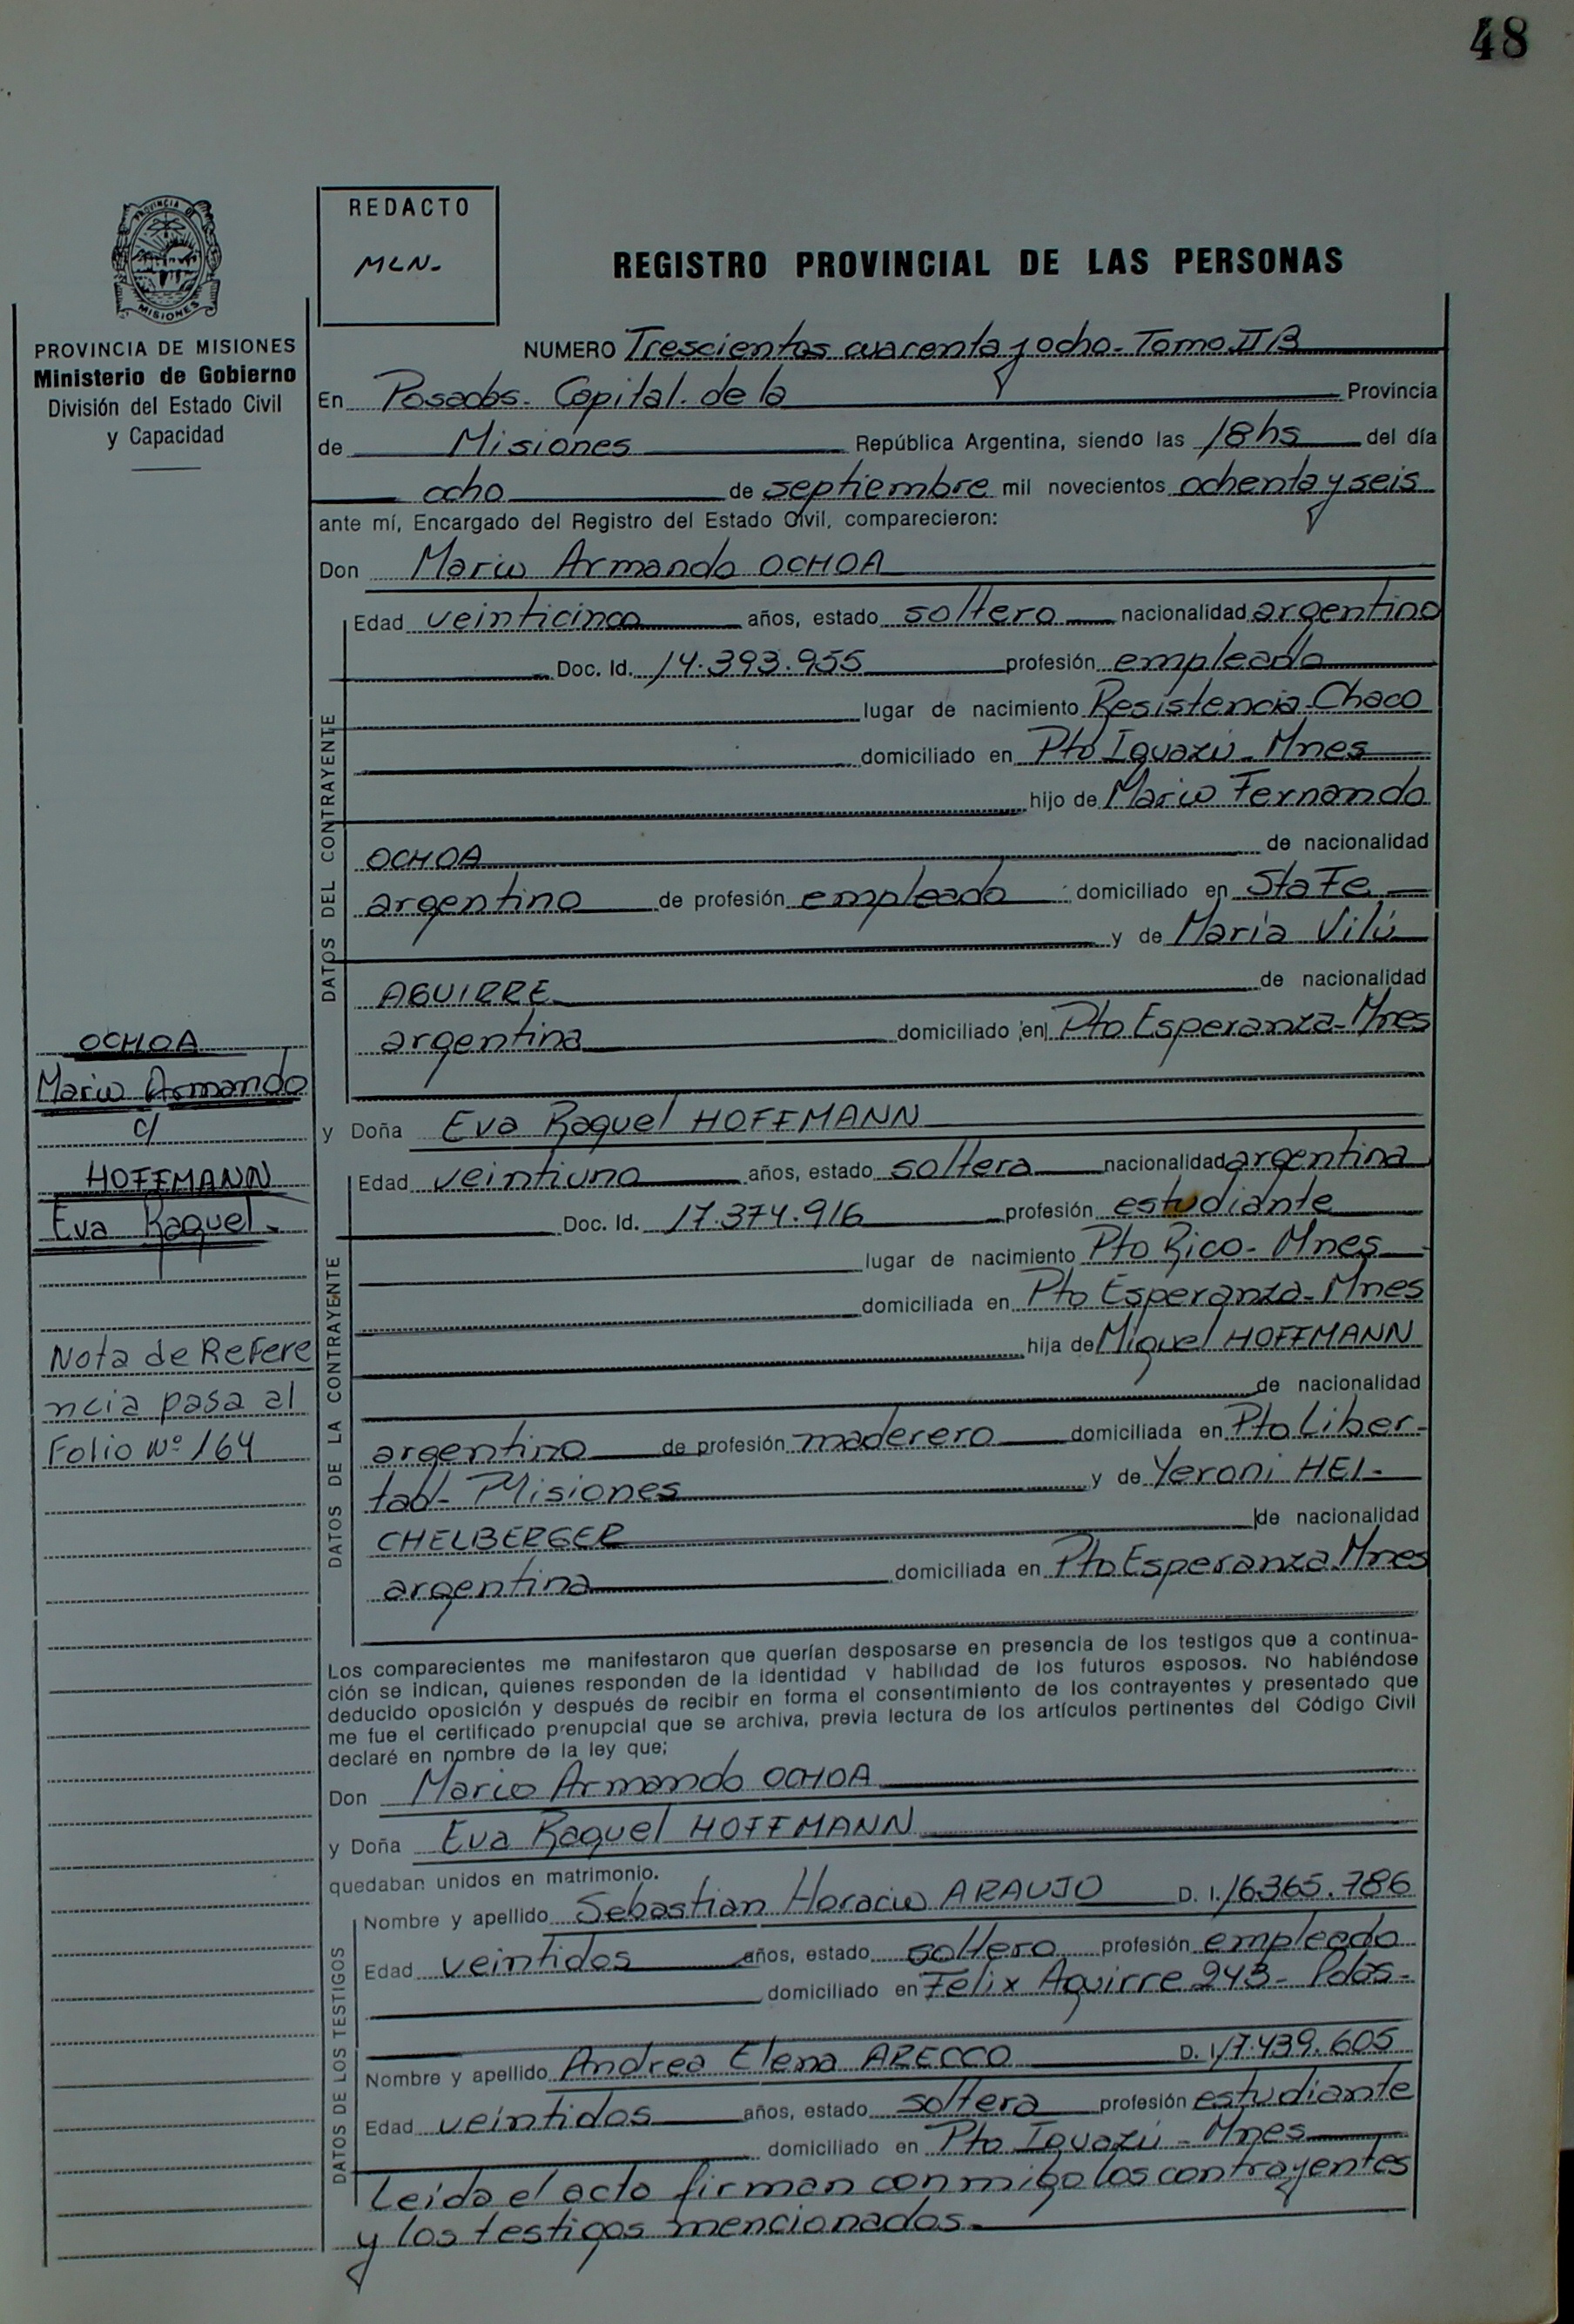 48
PROVINCIA DE
MISIONES
PROVINCIA DE MISIONES
Ministerio de Gobierno
División del Estado Civil
y Capacidad
REDACTO
MLN.
REGISTRO PROVINCIAL DE LAS PERSONAS
NUMERO Trescientos cuarenta y ocho - Tomo II B
En Posadas. Capital. de la Provincia
de Misiones República Argentina, siendo las 18hs del día
ocho de septiembre mil novecientos ochenta y seis
ante mí, Encargado del Registro del Estado Civil, comparecieron:
Don Mario Armando OCHOA
DATOS DEL CONTRAYENTE
Edad veinticinco años, estado soltero nacionalidad argentino
Doc. Id. 14.393.955 profesión empleado
lugar de nacimiento Resistencia-Chaco
domiciliado en Pto Iguazú - Mnes
hijo de Mario Fernando
OCHOA de nacionalidad
argentino de profesión empleado domiciliado en Sta Fe
y de María Vilú
AGUIRRE de nacionalidad
argentina domiciliado en Pto Esperanza-Mnes
OCHOA
Mario Armando
c/
HOFFMANN
Eva Raquel -
Nota de Refere
ncia pasa al
Folio Nº 164
y Doña Eva Raquel HOFFMANN
DATOS DE LA CONTRAYENTE
Edad veintiuno años, estado soltera nacionalidad argentina
Doc. Id. 17.374.916 profesión estudiante
lugar de nacimiento Pto Rico - Mnes
domiciliada en Pto Esperanza-Mnes
hija de Miguel HOFFMANN
de nacionalidad
argentino de profesión maderero domiciliada en Pto Liber-
tad- Misiones y de Yerani HEI-
CHELBERGER de nacionalidad
argentina domiciliada en Pto Esperanza.Mnes
Los comparecientes me manifestaron que querían desposarse en presencia de los testigos que a continua-
ción se indican, quienes responden de la identidad y habilidad de los futuros esposos. No habiéndose
deducido oposición y después de recibir en forma el consentimiento de los contrayentes y presentado que
me fue el certificado prenupcial que se archiva, previa lectura de los artículos pertinentes del Código Civil
declaré en nombre de la ley que;
Don Mario Armando OCHOA
y Doña Eva Raquel HOFFMANN
quedaban unidos en matrimonio.
DATOS DE LOS TESTIGOS
Nombre y apellido Sebastian Horacio ARAUJO D. I. 16.365.786
Edad veintidos años, estado soltero profesión empleado
domiciliado en Felix Aguirre 243 - Pdas -
Nombre y apellido Andrea Elena ARECCO D. I. 17.439.605
Edad veintidos años, estado soltera profesión estudiante
domiciliado en Pto Iguazú - Mnes
Leida el acta firman conmigo los contrayentes
y los testigos mencionados.